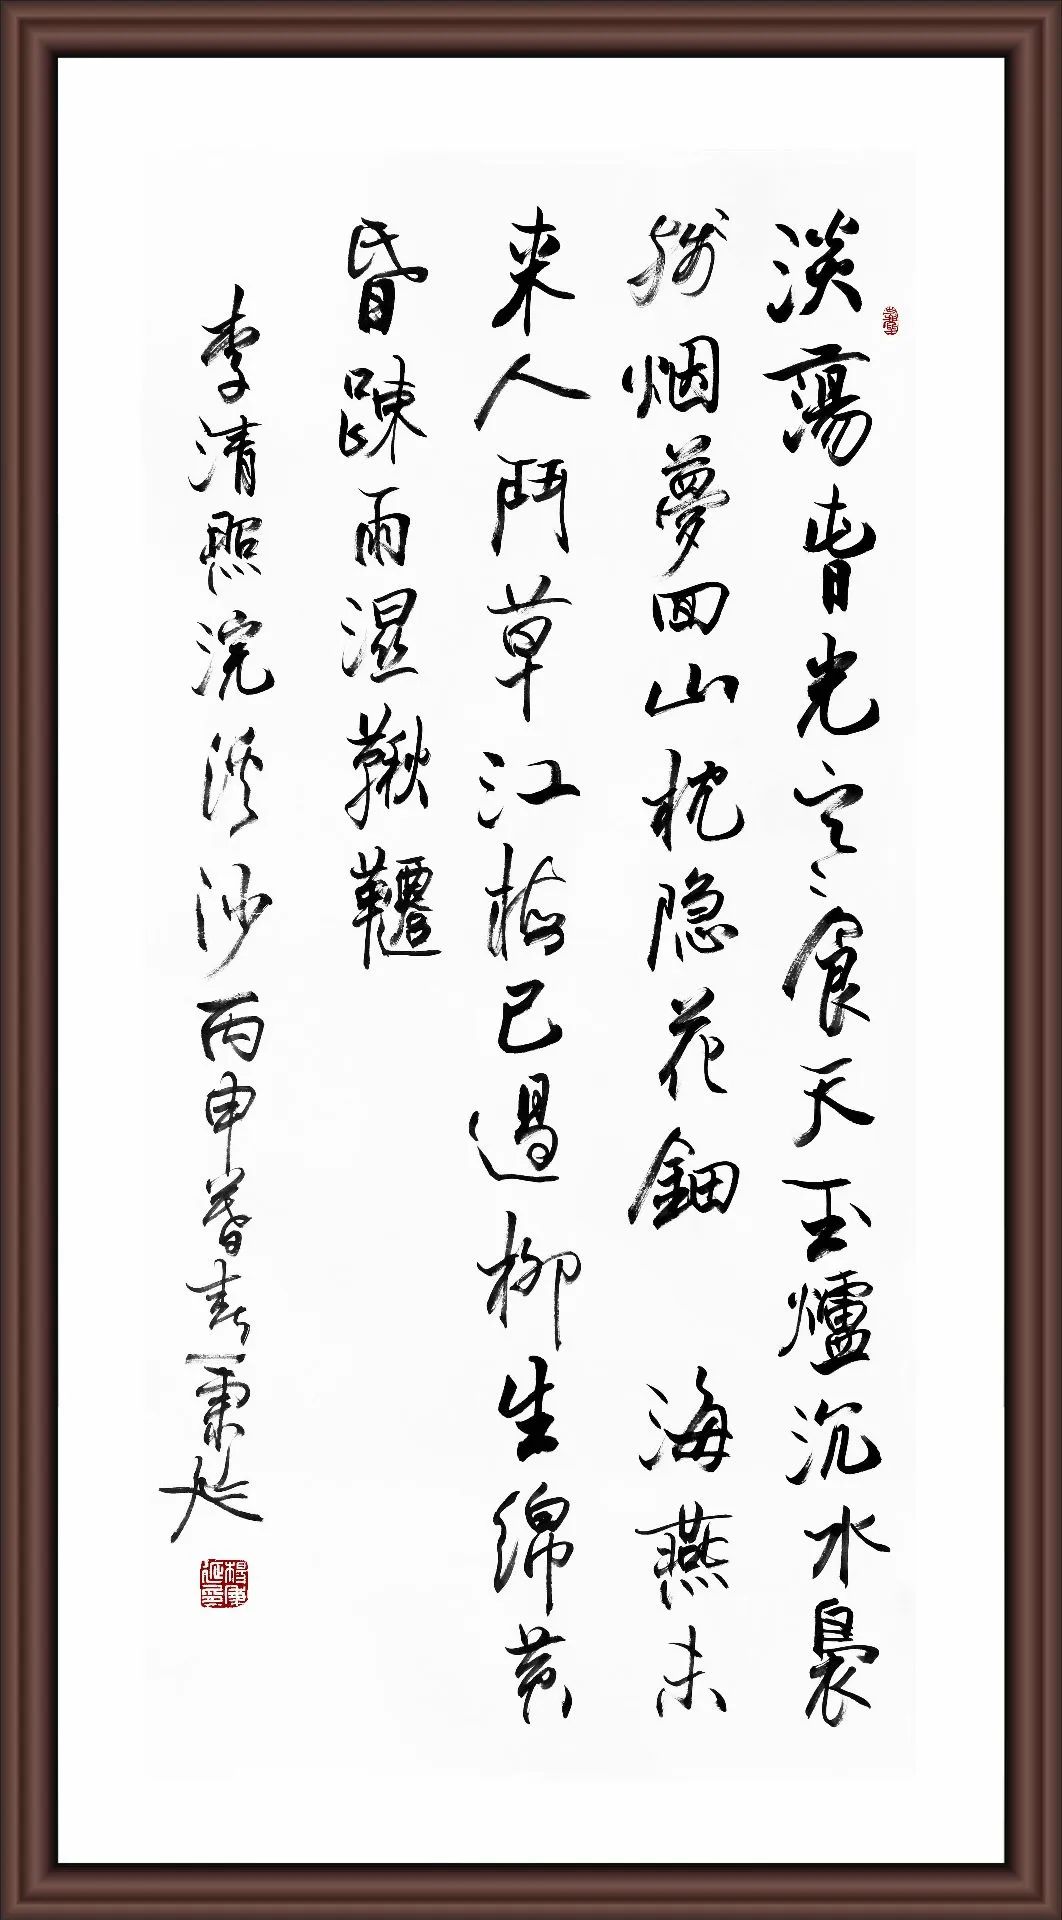 淡蕩春光寒食天玉爐沉水裊
残烟夢回山枕隐花鈿 海燕未
来人鬥草江梅已過柳生綿黄
昏踈雨湿鞦韆
李清照浣溪沙丙申暮春